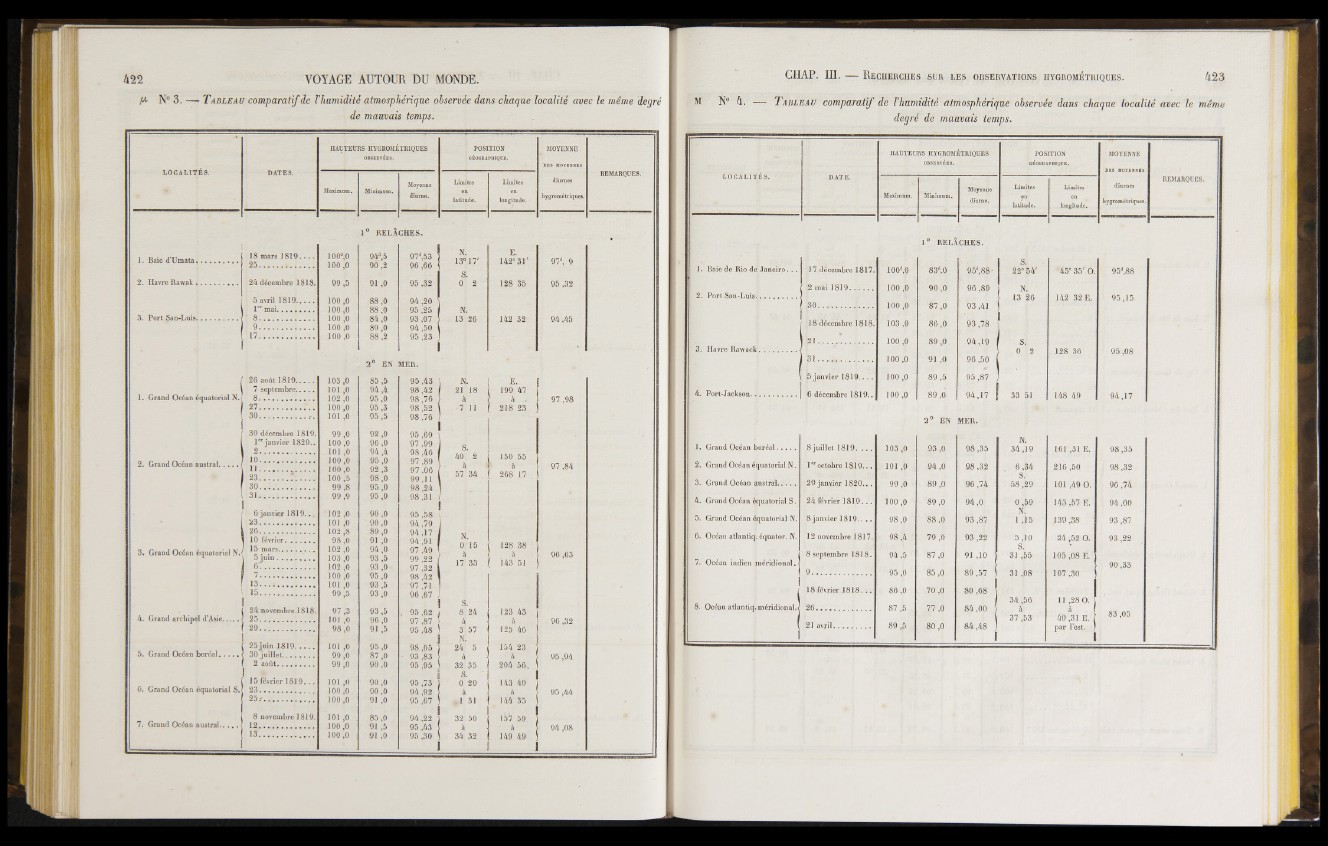 422 VOYAGE AUTOUR DU MONDE.
N° 3. — TABLEAU comparatif de l'humidité atmosphérique observée dans chaque localité avec le même degré
de mauvais temps.
LOCALITÉS. DATES. HAUTEURS HYGROMÉTRIQUES OBSERVÉES. POSITION GÉOGRAPHIQUE. MOYENNE DES MOYENNES diurnes hygrométriques. REMARQUES.
Maximum. Minimum. Moyenne diurne. Limites en latitude. Limites en longitude.
1° RELÂCHES.
1. Baie d'Umata 18 mars 1819 100°,0 94°,5 97°,53 N. 13° 17' E. 142° 31' 97°, 9
25 100 ,0 90 ,2 96 ,66
2. Havre Rawak 24 décembre 1818. 99 ,5 91 ,0 95 ,32 S. 0 2 128 35 95 ,32
3. Port San-Luis 5 avril 1819 100 ,0 88 ,0 94 ,20 N. 13 26 142 32 94 ,45
1er mai 100 ,0 88 ,0 95 ,25
8 100 ,0 84 ,0 93 ,07
9 100 ,0 89 ,0 94 ,50
17 100 ,0 88 ,2 95 ,23
2° EN MER.
1. Grand Océan équatorial N. 26 août 1819 103 ,0 85 ,5 95 ,43 N. 21 18 à 7 11 E. 199 47 à 218 23 97 ,98
7 septembre 101 ,0 94 ,4 98 ,42
8 102 ,0 95 ,0 98 ,76
27 100 ,0 95 ,3 98 ,52
30 101 ,0 95 ,5 98 ,76
2. Grand Océan austral 30 décembre 1819. 99 ,0 92 ,0 95 ,69 S. 40 2 à 57 34 150 55 à 268 17 97 ,84
1er janvier 1820.. 100 ,0 96 ,0 97 ,99
2 101 ,0 94 ,4 98 ,46
10 100 ,0 95 ,0 97 ,89
11 100 ,0 92 ,3 97 ,06
23 100 ,5 98 ,0 99 ,11
30 99 ,8 95 ,0 98 ,24
31 99 ,9 95 ,0 98 ,31
3. Grand Océan équatorial N. 6 janvier 1819 102 ,0 90 ,0 95 ,58 N. 0 15 à 17 35 128 38 à 143 51 96 ,63
23 101 ,0 90 ,0 94 ,79
26 102 ,8 89 ,0 94 ,17
10 février 98 ,0 91 ,0 94 ,91
15 mars 102 ,0 94 ,0 97 ,49
5 juin 103 ,0 93 ,5 99 ,22
6 102 ,0 93 ,0 97 ,32
7 100 ,0 95 ,0 98 ,42
13 101 ,0 93 ,5 97 ,71
15 99 ,5 93 ,0 96 ,67
4. Grand archipel d'Asie 24 novembre 1818. 97 ,3 93 ,5 95 ,62 S. 8 24 à 3 57 123 43 à 125 46 96 ,32
25 101 ,0 96 ,0 97 ,87
29 98 ,0 91 ,5 95 ,48
5. Grand Océan boréal 25 juin 1819 101 ,0 95 ,0 98 ,05 N. 24 5 à 32 35 154 23 à 204 56 95 ,94
30 juillet 99 ,0 87 ,0 93 ,83
2 août 99 ,0 90 ,0 95 ,95
6. Grand Océan équatorial S. 15 février 1819 101 ,0 90 ,0 95 ,73 S. 0 20 à 1 51 143 49 à 144 35 95 ,44
23 100 ,0 90 ,0 94 ,92
25 100 ,0 91 ,0 95 ,67
7. Grand Océan austral 8 novembre 1819. 101 ,0 85 ,0 94 ,22 32 50 à 34 32 157 59 à 149 49 94 ,98
12 100 ,0 91 ,5 95 ,43
13 100 ,0 91 ,0 95 ,30
CHAP. III. — RECHERCHES SUR LES OBSERVATIONS HYGROMÉTRIQUES. 423
M N° 4. — TABLEAU comparatif de l'humidité atmosphérique observée dans chaque localité avec le même
degré de mauvais temps.
LOCALITÉS. DATE. HAUTEURS HYGROMÉTRIQUES OBSERVÉES. POSITION GÉOGRAPHIQUE. MOYENNE DES MOYENNES diurnes hygrométriques. REMARQUES.
Maximum. Minimum. Moyenne diurne. Limites en latitude. Limites en longitude.
1° RELÂCHES.
1. Baie de Rio de Janeiro 17 décembre 1817. 100°,0 83°,0 95°,88 S. 22° 54' 45° 35' O. 95°,88
2. Port San-Luis 2 mai 1819 100 ,0 90 ,0 96 ,89 N. 13 26 142 32 E. 95 ,15
30 100 ,0 87 ,0 93 ,41
3. Havre Rawack 18 décembre 1818. 103 ,0 86 ,0 93 ,78 S. 0 2 128 36 95 ,08
21 100 ,0 89 ,0 94 ,19
31 100 ,0 91 ,0 96 ,50
5 janvier 1819 100 ,0 89 ,5 95 ,87
4. Port-Jackson 6 décembre 1819.. 100 ,0 89 ,0 94 ,17 33 51 148 49 94 ,17
2° EN MER.
1. Grand Océan boréal 8 juillet 1819 103 ,0 93 ,0 98 ,35 N. 34 ,19 161 ,31 E. 98 ,35
2. Grand Océan équatorial N. 1er octobre 1819 101 ,0 94 ,0 98 ,32 6 ,34 216 ,50 98 ,32
3. Grand Océan austral 29 janvier 1820 99 ,0 89 ,0 96 ,74 S. 58 ,29 101 ,49 O. 96 ,74
4. Grand Océan équatorial S. 24 février 1819 100 ,0 89 ,0 94 ,0 0 ,59 143 ,57 E. 94 ,00
5. Grand Océan équatorial N. 8 janvier 1819 98 ,0 88 ,0 93 ,87 N. 1 ,15 139 ,38 93 ,87
6. Océan atlantiq. équator. N. 12 novembre 1817. 98 ,4 79 ,0 93 ,22 5 ,10 24 ,52 O. 93 ,22
7. Océan indien méridional. 8 septembre 1818. 94 ,5 87 ,0 91 ,10 S. 31 ,55 105 ,08 E. 90 ,33
9 95 ,0 85 ,0 89 ,57 31 ,08 107 ,30
8. Océan atlantiq. méridional. 18 février 1818 86 ,0 70 ,0 80 ,68 34 ,56 à 37 ,53 11 ,28 O. à 40 ,31 E. par l'est. 83 ,05
26 87 ,5 77 ,0 84 ,00
21 avril 89 ,5 80 ,0 84 ,48